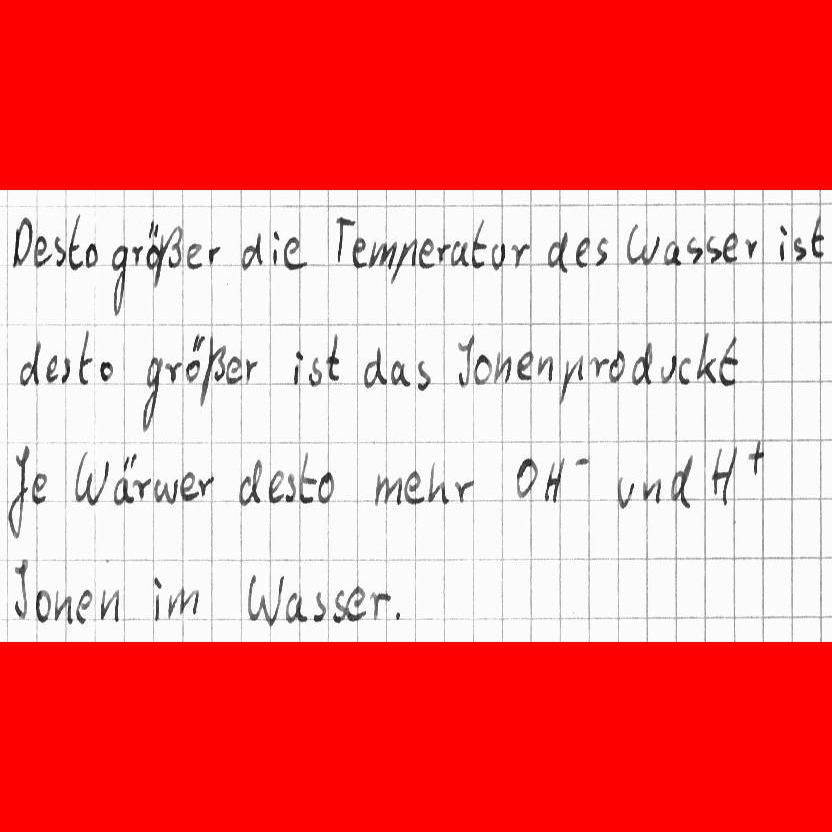 Desto größer die Temperatur des Wasser ist
desto größer ist das Jonenproduckt
Je Wärwer desto mehr OH⁻ und H⁺
Jonen im Wasser.